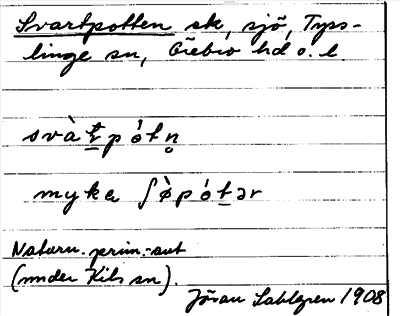 Svartpotten sk, sjö, Tyss-
linge sn, Örebro hd o. l.
svàt̲pót n̥
myke ʃø̀pót̲ər
Naturn. prim.-aut
(under Kils sn).
Jöran Sahlgren 1908